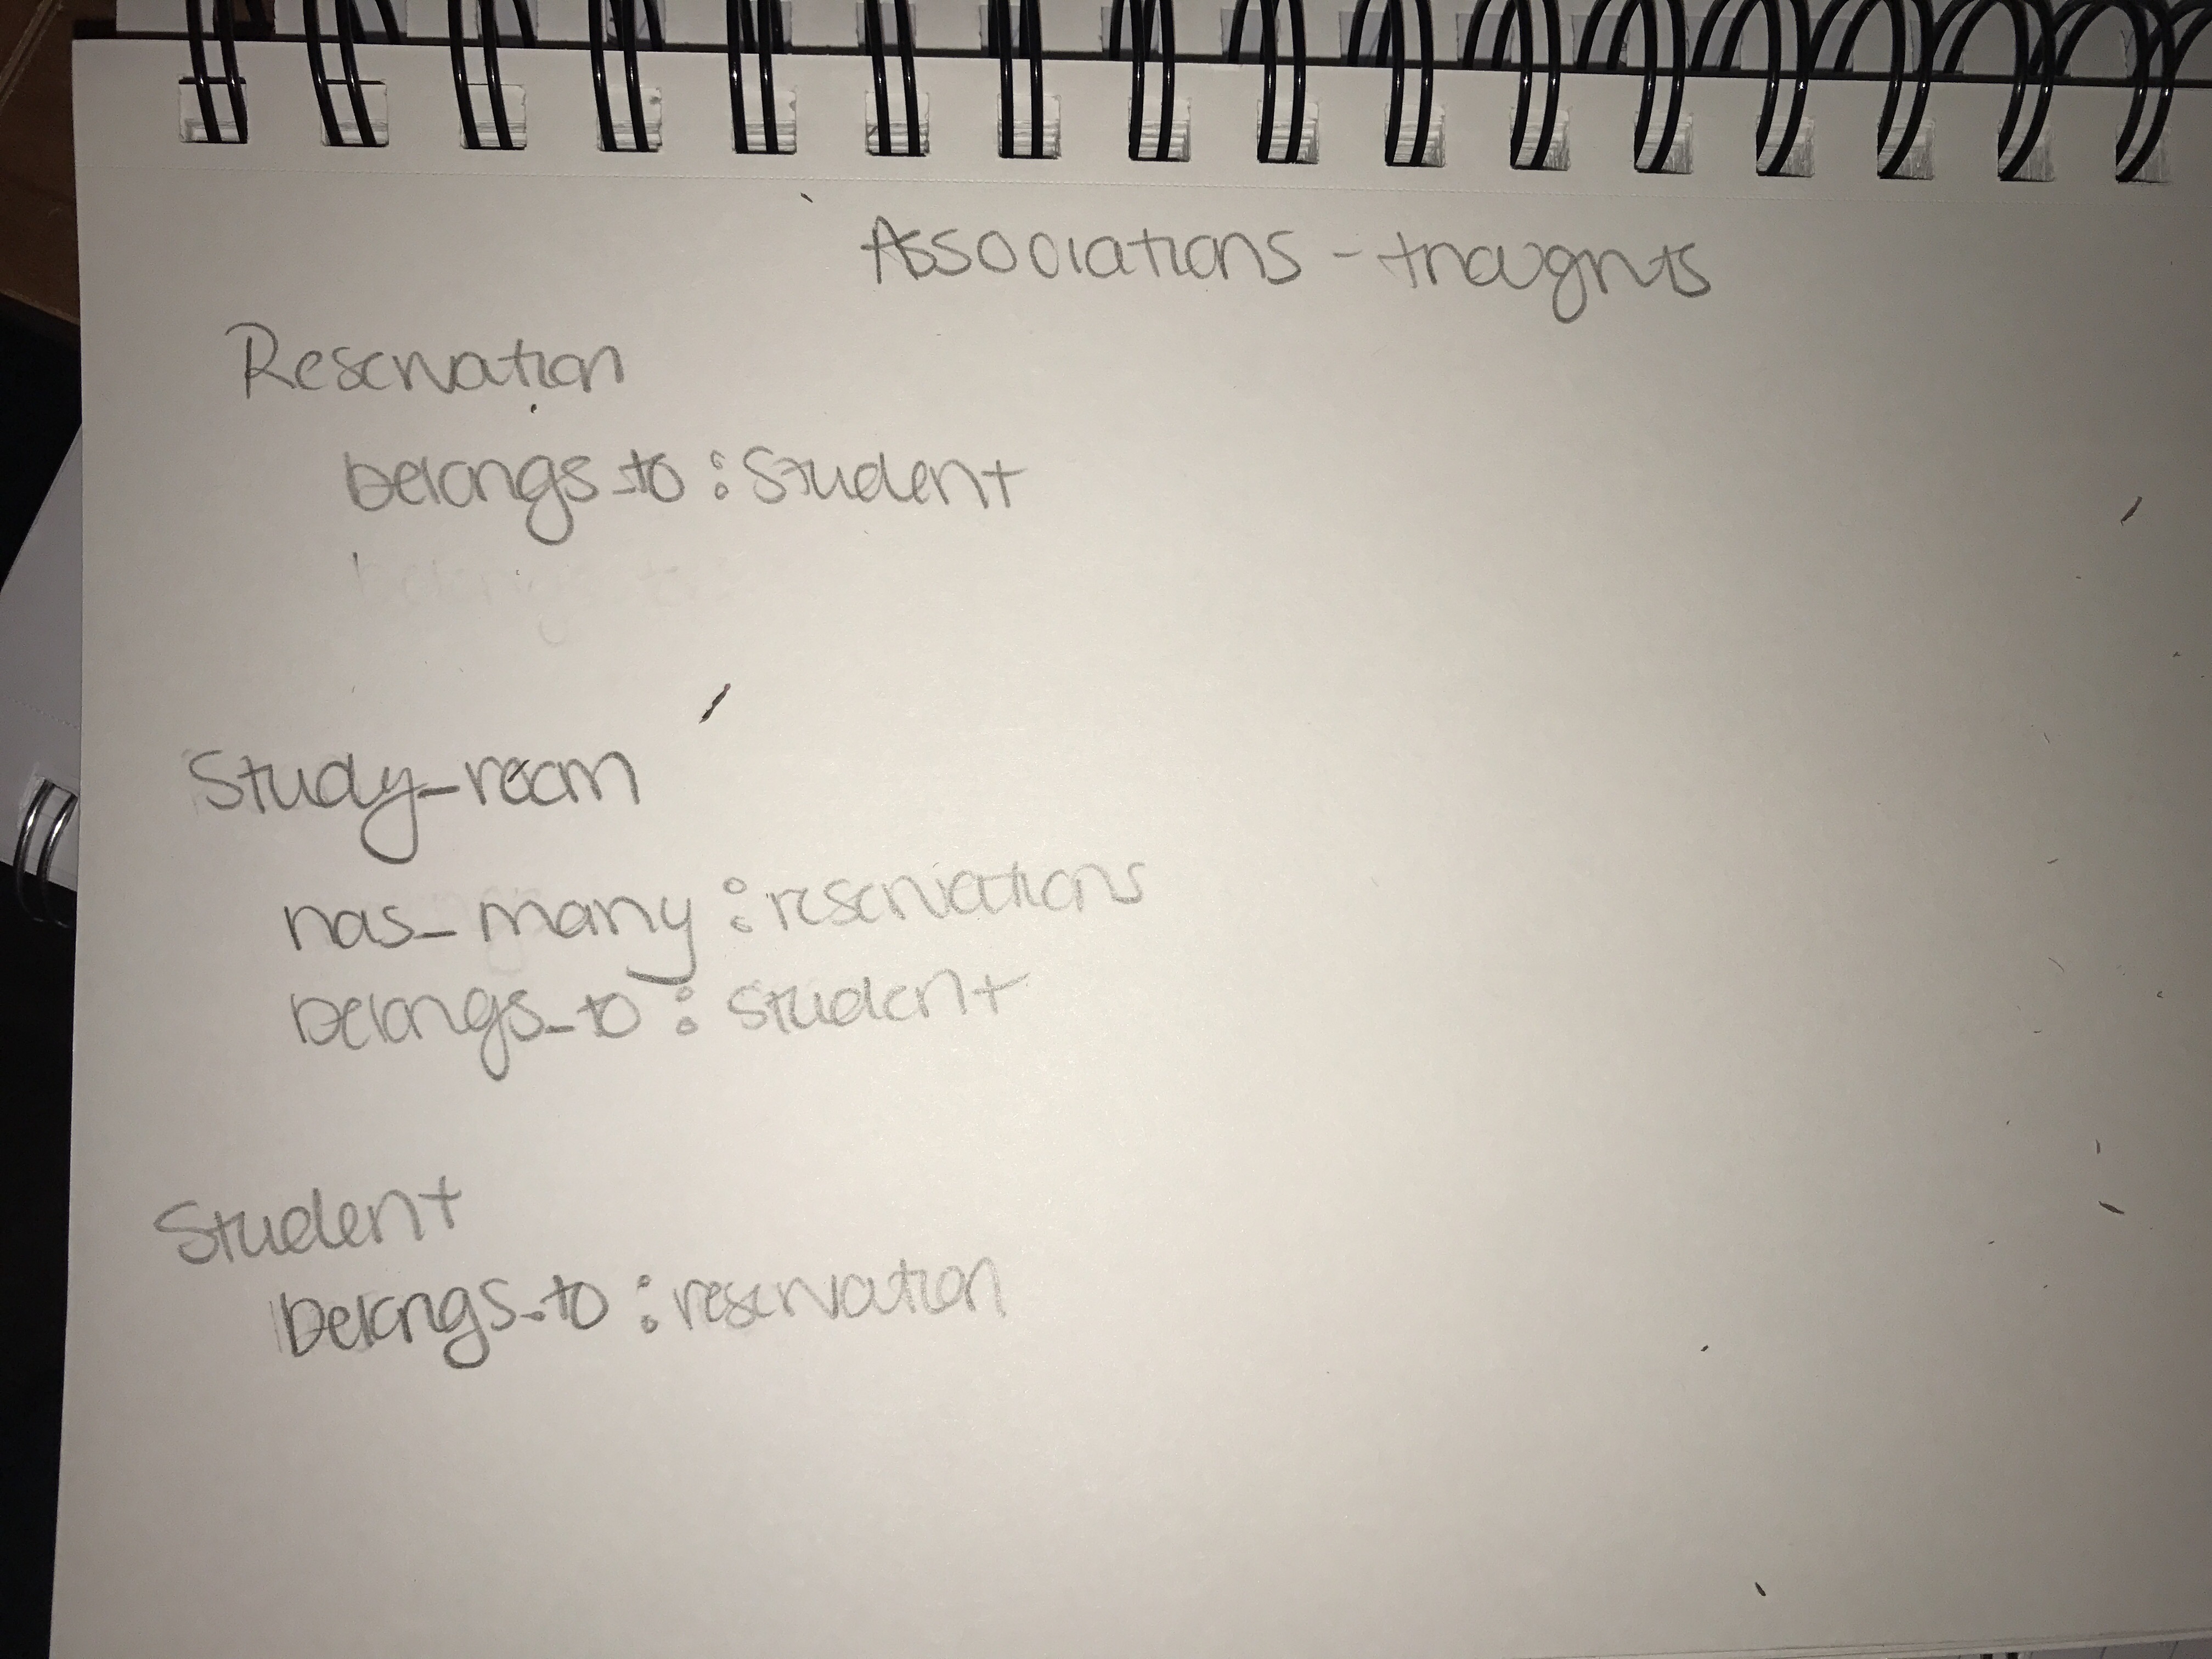 Associations - thoughts
Reservation
belongs_to : Student
belongs to :
Study_room
has_many : reservations
belongs_to : student
Student
belongs_to : reservation